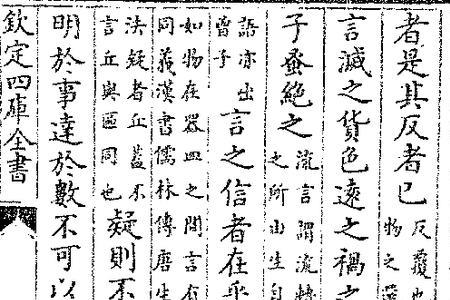 者是其反者已反覆也
物之
言滅之貨色遠之禍之
子蚤絶之流言謂流轉
之所由生自
語亦出
曾子言之信者在乎
如物在器皿之間言有
同義漢書儒林傳唐生
決疑者丘蓋不
言丘與區同也疑則不
明於事達於數不可以
欽定四庫全書